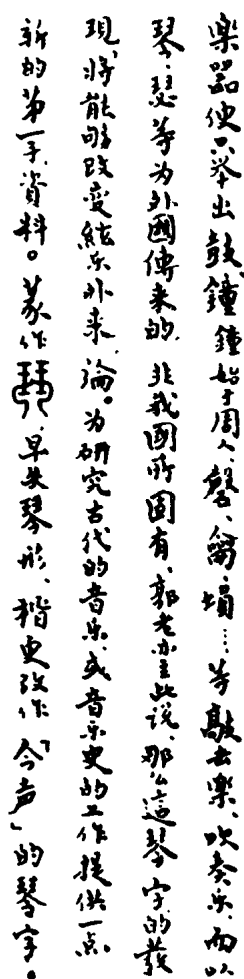 樂器便只举出鼓、鐘、鐘始于周人、磬、籥、塤……等敲击樂、吹奏乐、而以
琴、瑟等为外國傳来的、非我國所固有、郭老亦主此说、那么這琴字的發
現、将能够改变絃乐外来論。为研究古代的音乐或音乐史的工作提供一点
新的第一手資料。篆作、早失琴形、楷更改作「今声」的琴字。